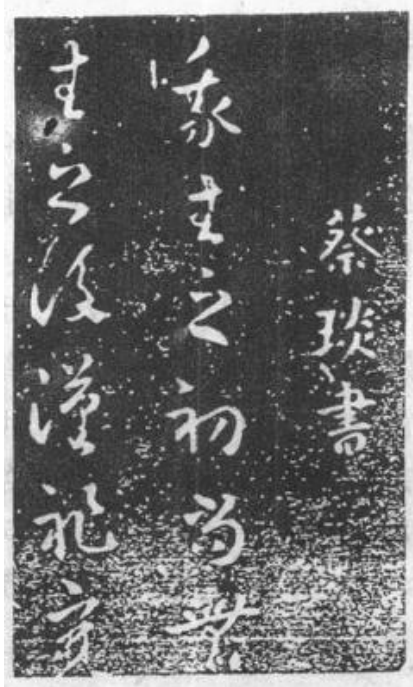 蔡琰書
我生之初尚無
生之後漢祚衰